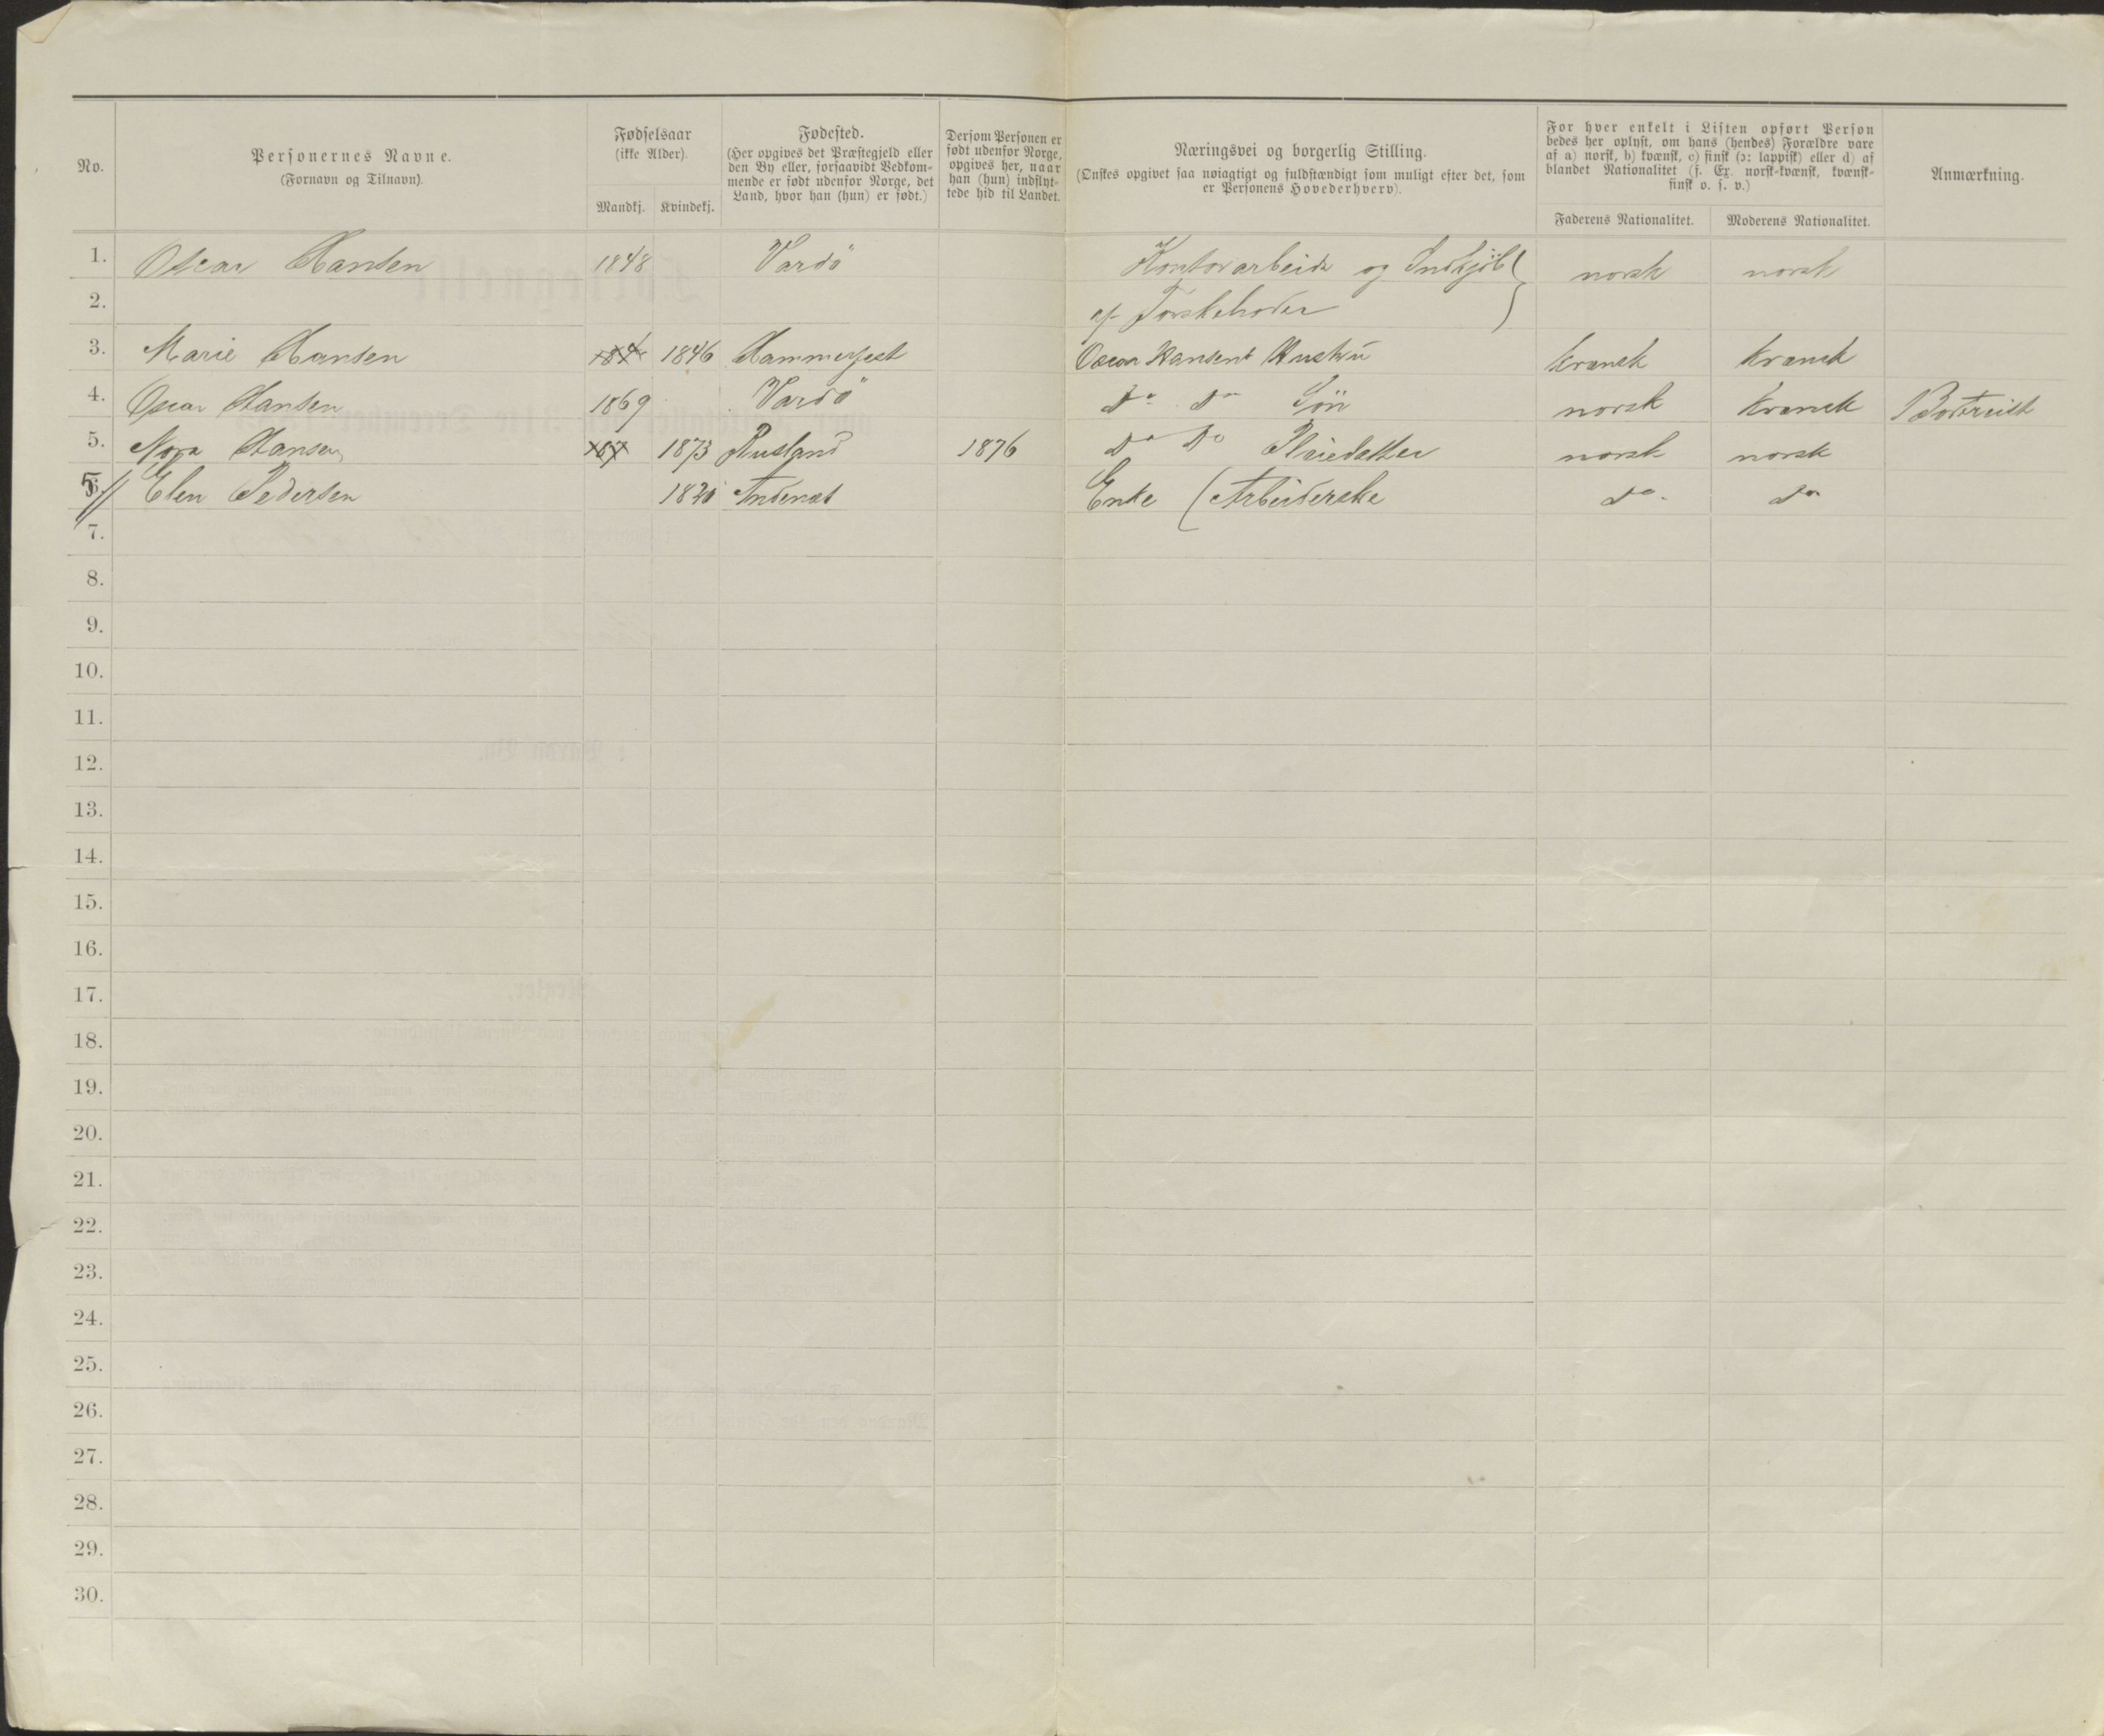 No.
Personernes Navne.
(Fornavn og Tilnavn).
Fødselsaar
(ikke Alder).
Mandkj. Kvindekj.
Fødested.
(Her opgives det Præstegjeld eller
den By eller, forsaavidt Vedkom-
mende er født udenfor Norge, det
Land, hvor han (hun) er født.)
Dersom Personen er
født udenfor Norge,
opgives her, naar
han (hun) indflyt-
tede hid til Landet.
Næringsvei og borgerlig Stilling.
(Ønskes opgivet saa nøiagtigt og fuldstændigt som muligt efter det, som
er Personens Hovederhverv).
For hver enkelt i Listen opført Person
bedes her oplyst, om hans (hendes) Forældre vare
af a) norsk, b) kvænsk, c) finsk (ɔ: lappisk) eller d) af
blandet Nationalitet (f. Ex. norsk-kvænsk, kvænsk-
finsk o. s. v.)
Faderens Nationalitet. Moderens Nationalitet.
Anmærkning.
1. Oscar Hansen 1848 Vardö Kontorarbeide og Indkjöb norsk norsk
2. af Torskehoder
3. Marie Hansen 184 1846 Hammerfest Oscar Hansens Hustru kvænsk kvænsk
4. Oscar Hansen 1869 Vardö Do Do Sön norsk kvænsk Bortreist
5. Nora Hansen 187 1873 Rusland 1876 Do Do Pleiedatter norsk norsk
5// Elen Pedersen Andenæs Enke (Arbeiderske do do
7.
8.
9.
10.
11.
12.
13.
14.
15.
16.
17.
18.
19.
20.
21.
22.
23.
24.
25.
26.
27.
28.
29.
30.